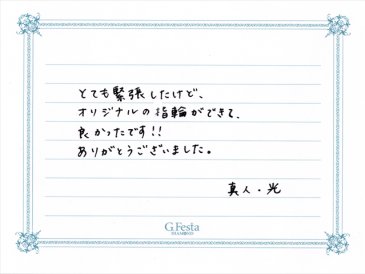 とても緊張したけど、
オリジナルの指輪ができて、
良かったです!!
ありがとうございました。
真人・光
G.Festa
DIAMOND